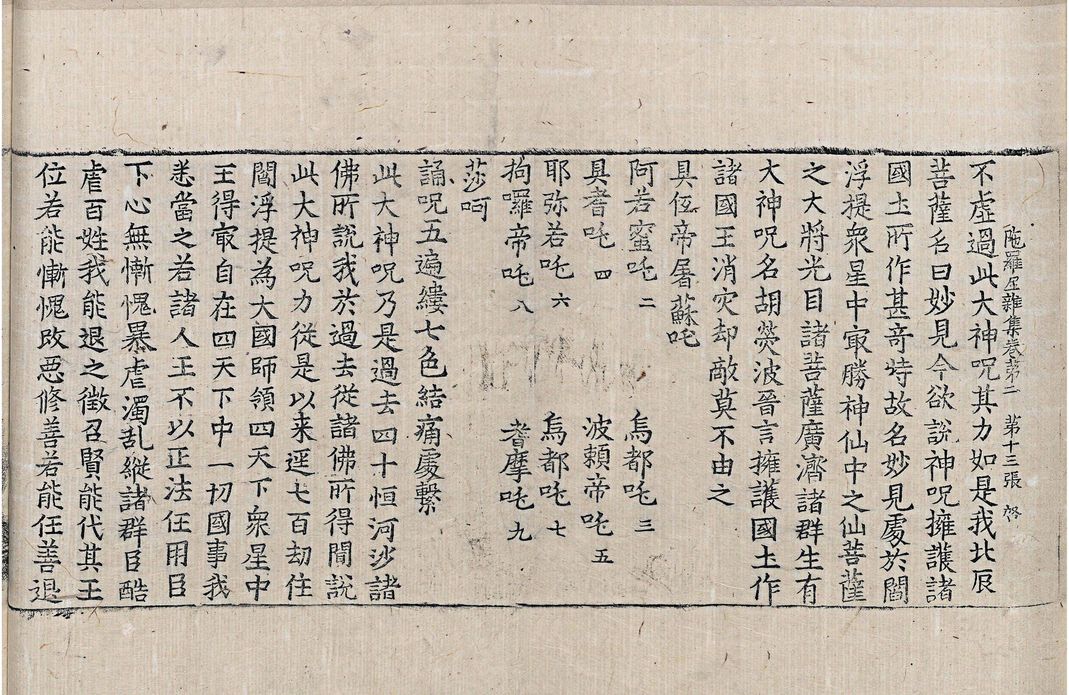 陁羅尼雜集卷第二　第十三張　啓
不虛過此大神呪其力如是我北辰
菩薩名曰妙見今欲說神呪擁護諸
國土所作甚奇特故名妙見處於閻
浮提衆星中冣勝神仙中之仙菩薩
之大將光目諸菩薩廣濟諸群生有
大神呪名胡𤇯波晉言擁護國土作
諸國王消灾却敵莫不由之
具低帝屠蘇吒
阿若蜜吒　二　烏都吒　三
具耆吒　四　波賴帝吒　五
耶弥若吒　六　烏都吒　七
拘羅帝吒　八　耆摩吒　九
莎呵
誦呪五遍縷七色結痛處繫
此大神呪乃是過去四十恒河沙諸
佛所說我於過去從諸佛所得聞說
此大神呪力從是以来逕七百劫住
閻浮提為大國師領四天下衆星中
王得冣自在四天下中一切國事我
悉當之若諸人王不以正法任用臣
下心無慚愧暴虐濁乱縱諸群臣酷
虐百姓我能退之徵召賢能代其王
位若能慚愧改惡修善若能任善退